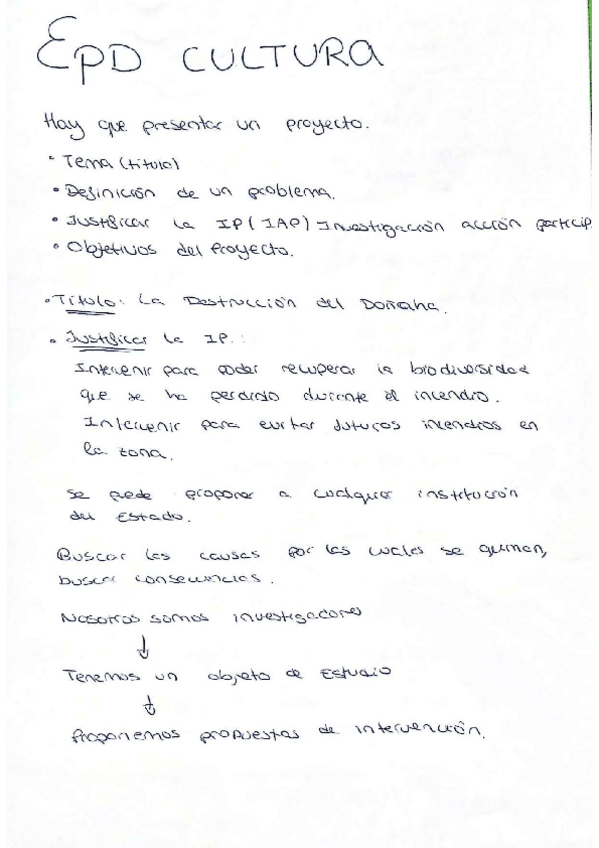 EPD CULTURA
Hay que presentar un proyecto.
• Tema (título)
• Definición de un problema.
• Justificar la IP (IAP) Investigación acción particip
• Objetivos del Proyecto.
• Título: La Destrucción del Doñana.
• Justificar la IP.:
Intervenir para poder recuperar la biodiversidad
que se ha perdido durante el incendio.
Intervenir para evitar futuros incendios en
la zona.
Se puede proponer a cualquier institución
del Estado.
Buscar las causas por las cuales se queman,
buscar consecuencias.
Nosotros somos investigadores
↓
Tenemos un objeto de Estudio
↓
Proponemos propuestas de intervención.